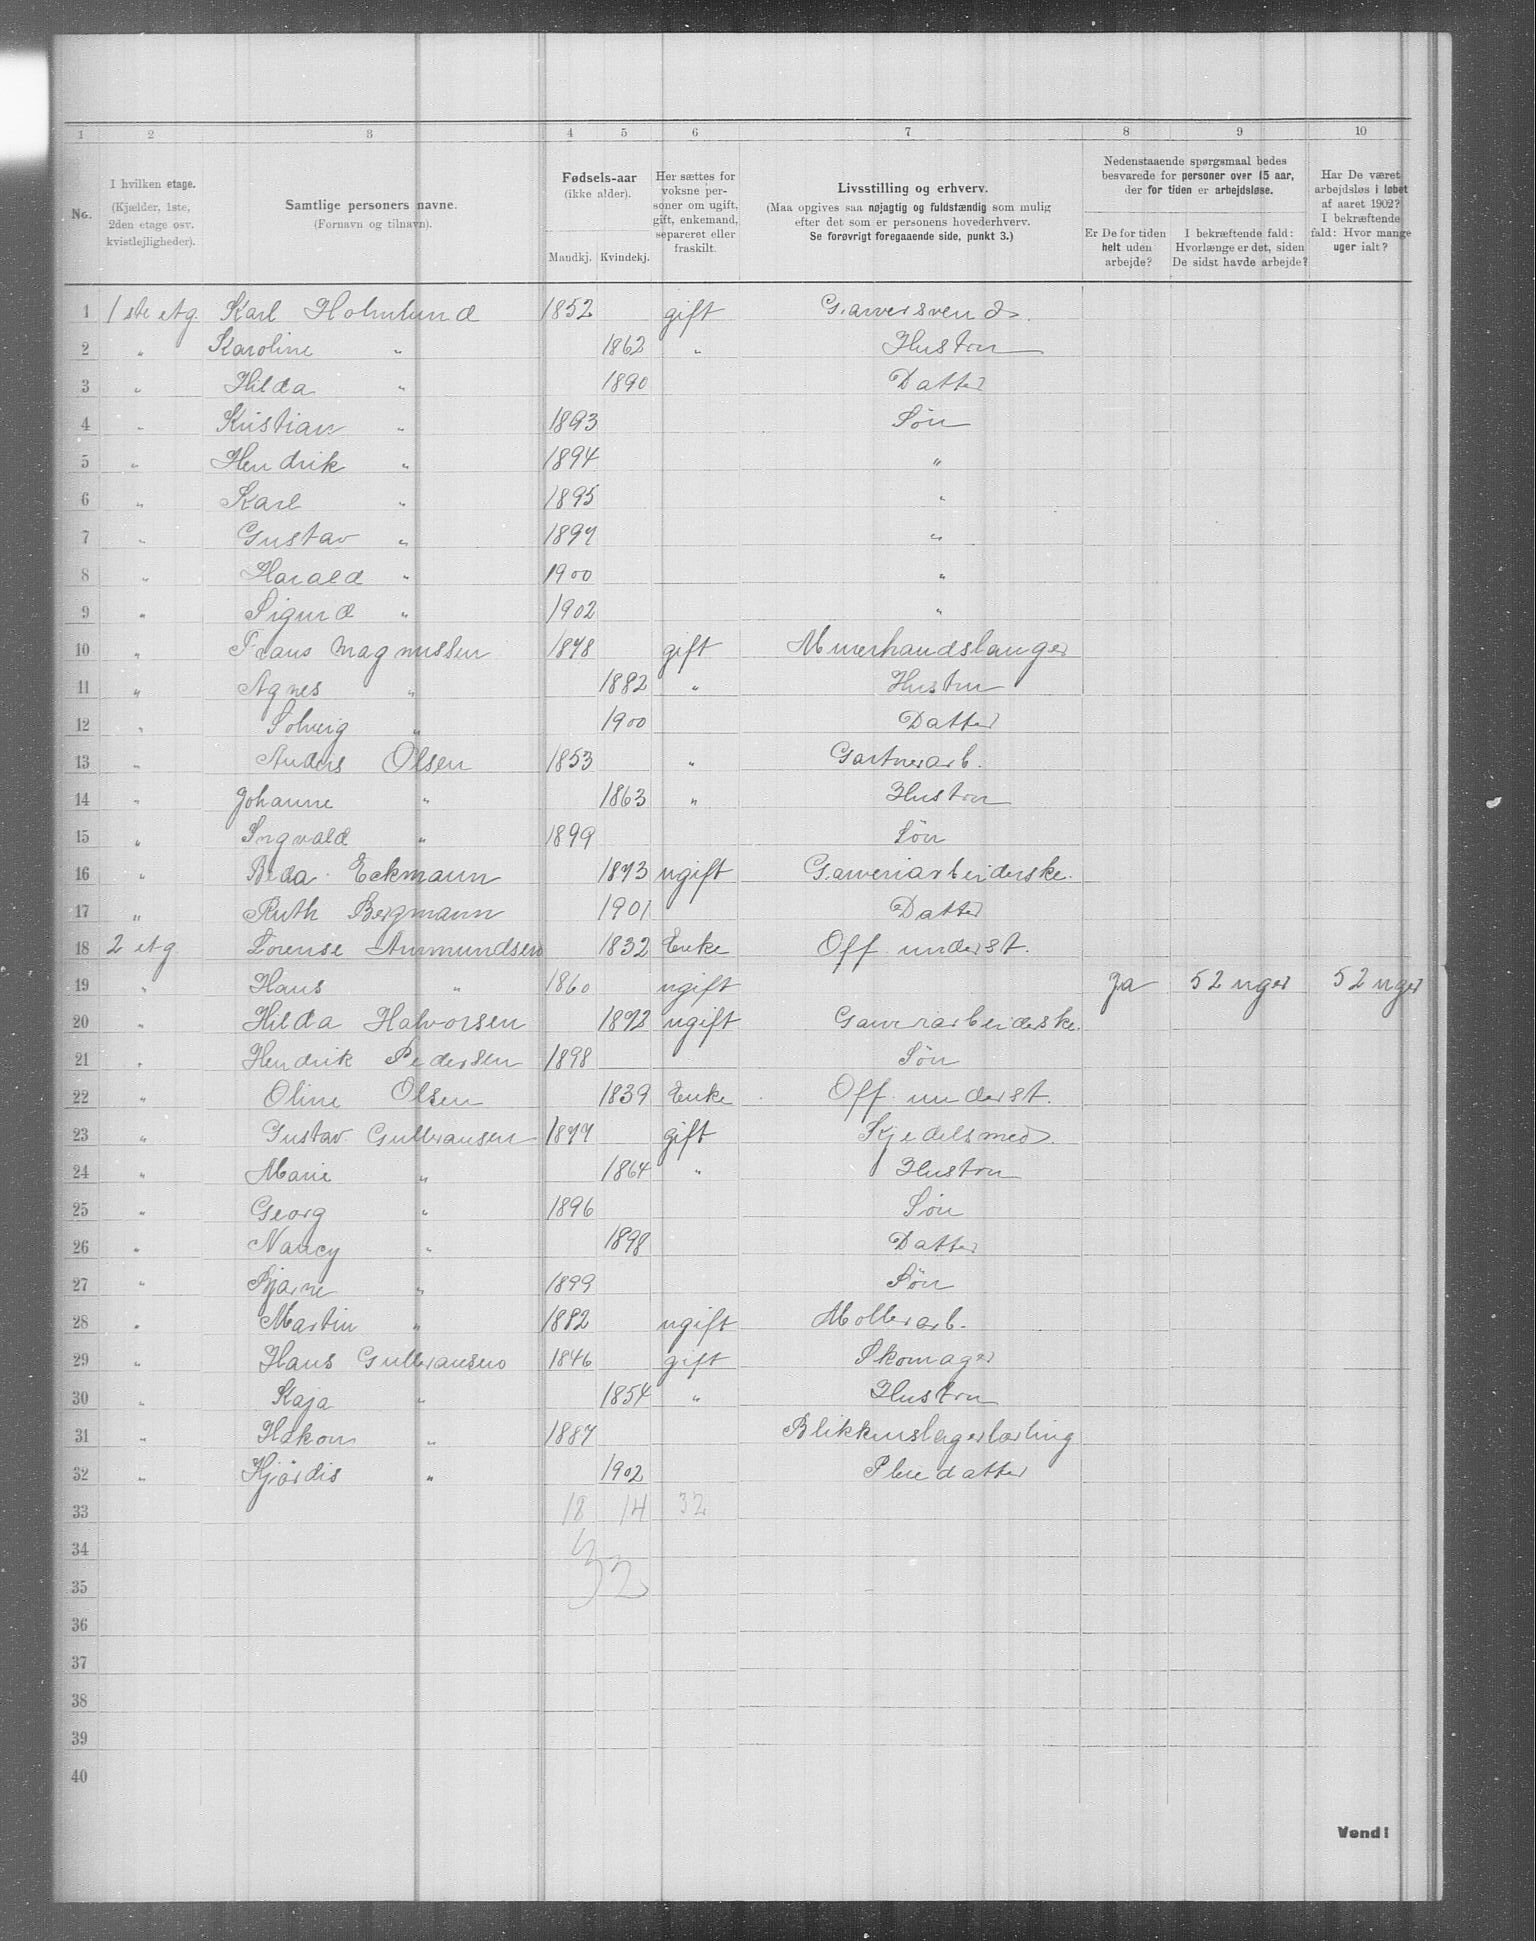 1 2 3 4 5 6 7 8 9 10
No.
I hvilken etage. (Kjælder, 1ste, 2den etage osv. kvistlejligheder).
Samtlige personers navne. (Fornavn og tilnavn).
Fødsels-aar (ikke alder). Mandkj. Kvindekj.
Her sættes for voksne personer om ugift, gift, enkemand, separeret eller fraskilt.
Livsstilling og erhverv. (Maa opgives saa nøjagtig og fuldstændig som mulig efter det som er personens hovederhverv. Se forøvrigt foregaaende side, punkt 3.)
Nedenstaaende spørgsmaal bedes besvarede for personer over 15 aar, der for tiden er arbejdsløse.
Er De for tiden helt uden arbejde?
I bekræftende fald: Hvorlænge er det, siden De sidst havde arbejde?
Har De været arbejdsløs i løbet af aaret 1902? I bekræftende fald: Hvor mange uger ialt?
1 1ste etg Karl Holmlund 1852 gift Garversvend.
2 " Karoline " 1862 " Hustru
3 " Hilda " 1890 Datter
4 " Kristian " 1893 Søn
5 " Hendrik " 1894 "
6 " Karl " 1895 "
7 " Gustav " 1897 "
8 " Harald " 1900 "
9 " Sigurd " 1902 "
10 " Frans Magnussen 1878 gift Murerhandslanger
11 " Agnes " 1882 " Hustru
12 " Solveig " 1900 Datter
13 " Anders Olsen 1853 " Gartnerarb.
14 " Johanne " 1863 " Hustru
15 " Ingvald " 1899 Søn
16 " Beda Eckmann 1873 ugift Garveriarbeiderske.
17 " Ruth Bergmann 1901 Datter
18 2 etg Lorense Ammundsen 1832 Enke Off. underst.
19 " Hans " 1860 ugift Ja 52 uger 52 uger
20 " Hilda Halvorsen 1872 ugift Garverarbeiderske.
21 " Hendrik Pedersen 1898 Søn
22 " Oline Olsen 1839 Enke Off. underst.
23 " Gustav Gulbransen 1877 gift Kjedelsmed.
24 " Marie " 1864 " Hustru
25 " Georg " 1896 Søn
26 " Nancy " 1898 Datter
27 " Bjarne " 1899 Søn
28 " Martin " 1882 ugift Mollerarb.
29 " Hans Gulbransen 1846 gift Skomager
30 " Kaja " 1854 " Hustru
31 " Håkon " 1887 Blikkenslagerlærling
32 " Hjördis " 1902 Pleiedatter
33 18 14 32
34
32
35
36
37
38
39
40
Vend!